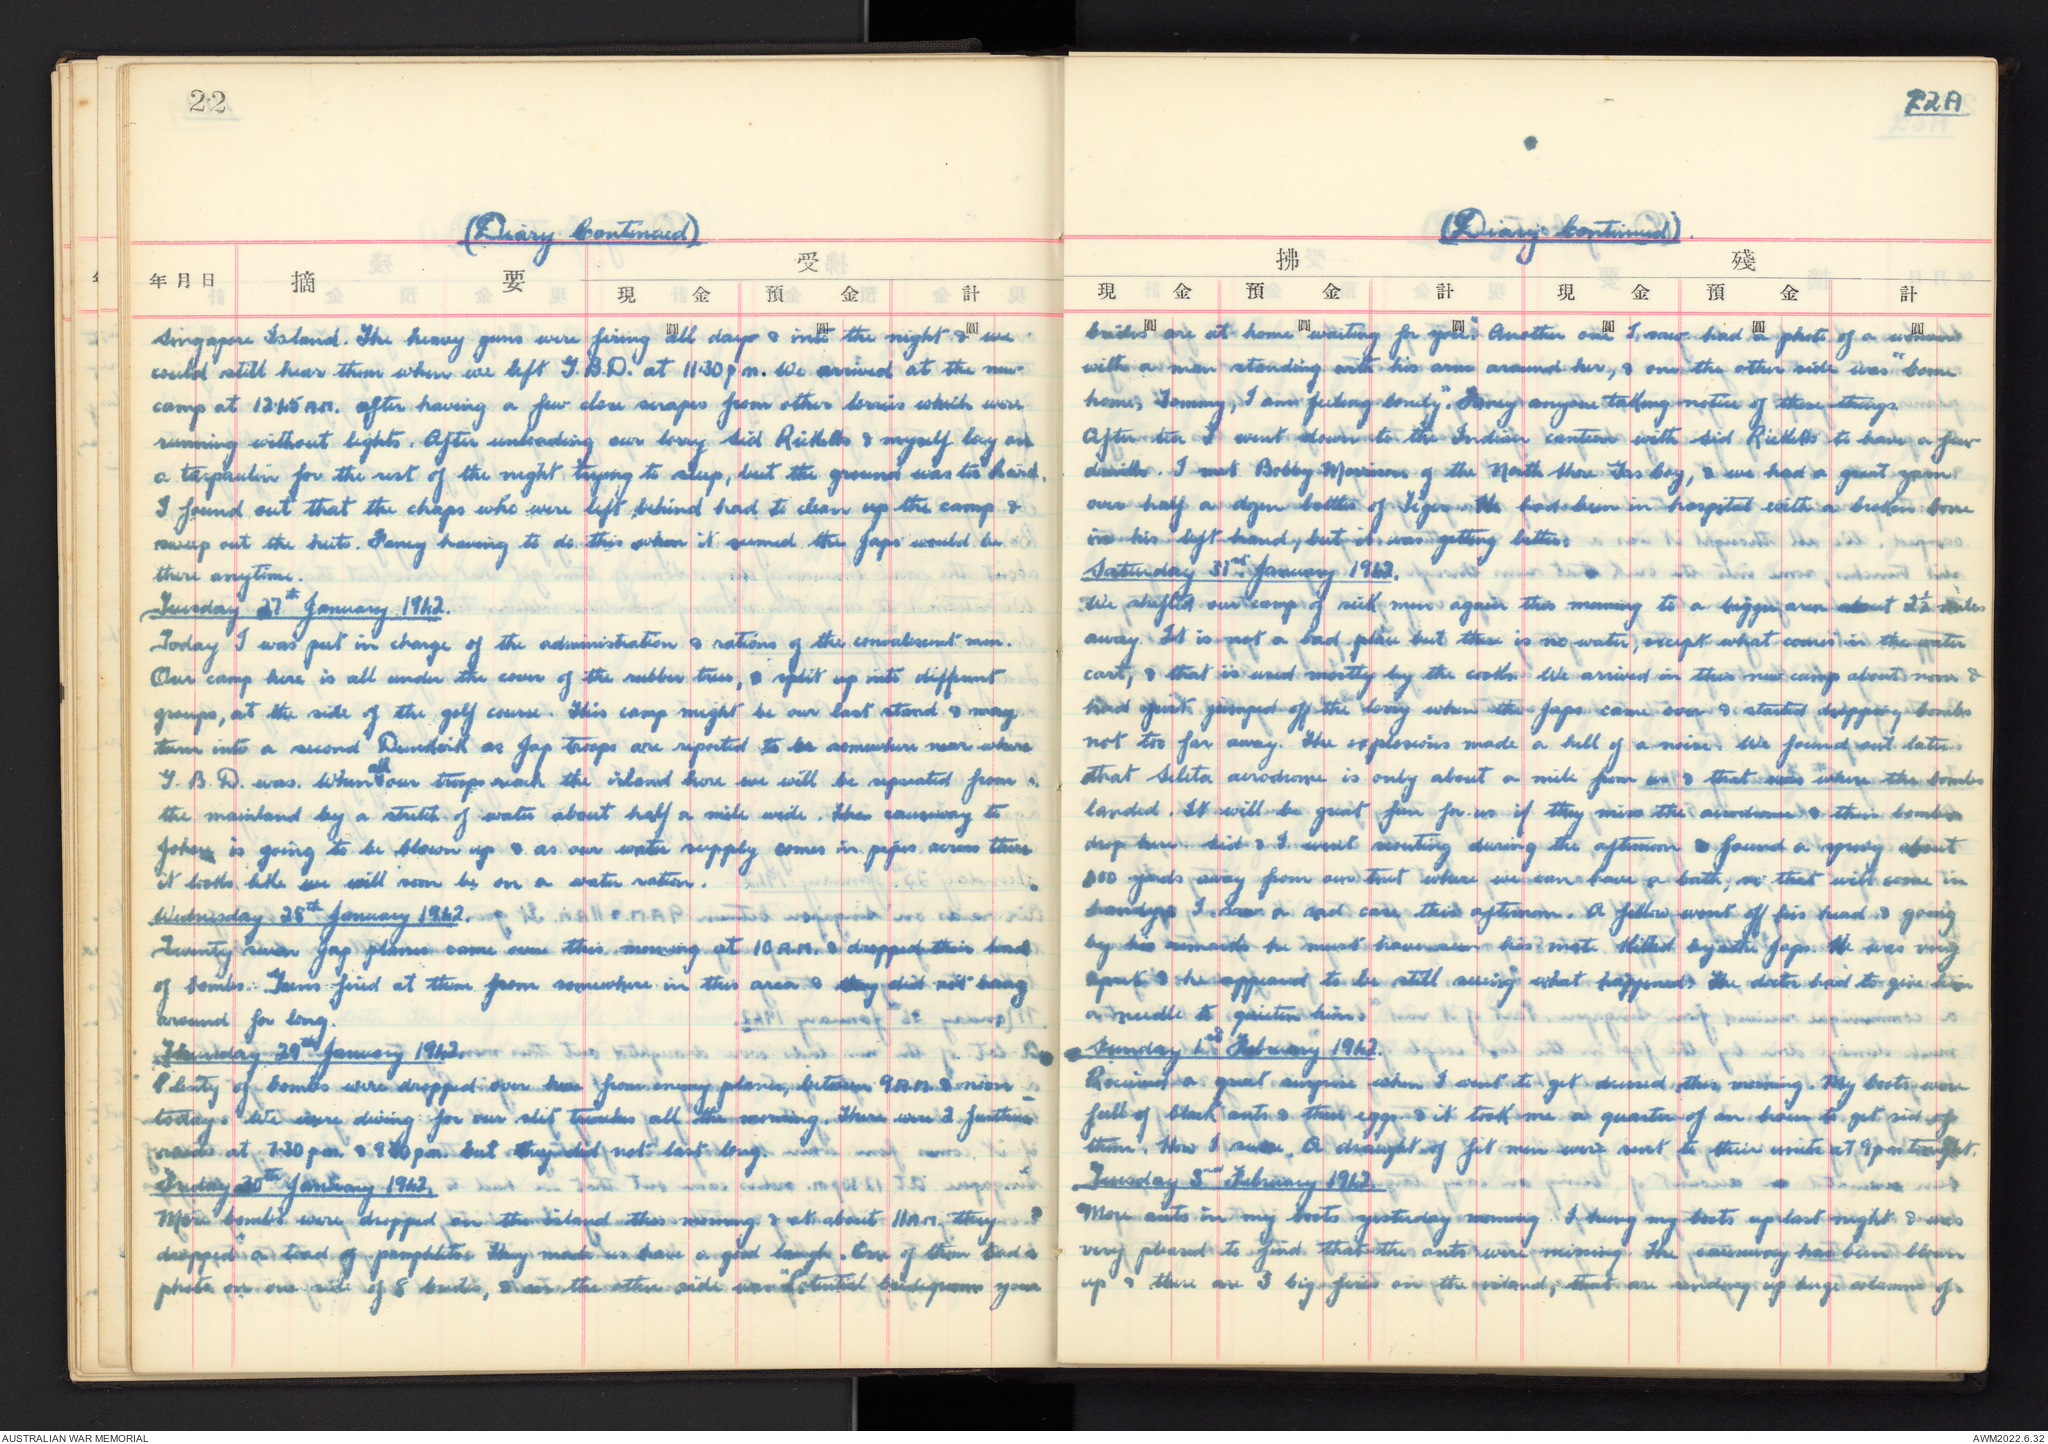 22
(Diary Continued)
年月日 摘 要 受
現 金 預 金 計
Singapore Island. The heavy guns were firing all days & into the night & we
could still hear them when we left G.B.D. at 11.30 p m. We arrived at the new
camp at 12.45 A.M. after having a few close scrapes from other lorries which were
running without lights. After unloading our lorry Sid Ricketts & myself lay on
a tarpaulin for the rest of the night trying to sleep, but the ground was too hard.
I found out that the chaps who were left behind had to clean up the camp &
sweep out the huts. Fancy having to do this when it seemed the Japs would be
there anytime.
Tuesday 27th January 1942.
Today I was put in charge of the administration & rations of the convalescent men.
Our camp here is all under the cover of the rubber trees, & split up into different
groups, at the side of the golf course. This camp might be our last stand & may
turn into a second Dunkirk as Jap troops are reported to be somewhere near where
G. B. D. was. When all our troops reach the island here we will be separated from
the mainland by a stretch of water about half a mile wide. The causeway to
Johore is going to be blown up & as our water supply comes in pipes across there
it looks like we will soon be on a water ration.
Wednesday 28th January 1942.
Twenty seven Jap planes came over this morning at 10 A.M. & dropped their load
of bombs. Guns fired at them from somewhere in this area & they did not hang
around for long.
Thursday 29th January 1942.
Plenty of bombs were dropped over here from enemy planes, between 9 A.M. & noon
today. We were diving for our slit trenches all the morning. There were 2 further
raids at 7.30 pm. & 9 pm. but they did not last long.
Friday 30th January 1942.
More bombs were dropped on the island this morning & at about 11 A.M. they
dropped a load of pamphlets. They made us have a good laugh. One of them had a
photo on one side of 8 brides, & on the other side was "Potential bridegrooms your
22A
(Diary Continued).
拂 殘
現 金 預 金 計 現 金 預 金 計
brides are at home waiting for you". Another one I saw had a photo of a woman
with a man standing with his arm around her, & on the other side was "Come
home, Tommy, I am feeling lonely". Fancy anyone taking notice of these things.
After tea I went down to the Indian canteen with Sid Ricketts to have a few
drinks. I met Bobby Morrison of the North Shore Gas boy, & we had a great yarn
over half a dozen bottles of Tiger. He had been in hospital with a broken bone
in his left hand, but it was getting better.
Saturday 31st January 1942.
We shifted our camp of sick men again this morning to a bigger area about 2½ miles
away. It is not a bad place but there is no water, except what comes in the water
cart, & that is used mostly by the cooks. We arrived in this new camp about noon &
had just jumped off the lorry when the Japs came over & started dropping bombs
not too far away. The explosions made a hell of a noise. We found out later
that Seleta aerodrome is only about a mile from us & that was where the bombs
landed. It will be great fun for us if they miss the aerodrome & their bombs
drop here. Sid & I went scouting during the afternoon & found a spring about
yards away from our tent where we can have a bath, so that will come in
handy. I saw a sad case this afternoon. A fellow went off his head & going
by his remarks he must have seen his mate killed by the Japs. He was very
upset & he appeared to be still seeing what happened. The doctor had to give him
a needle to quieten him.
Sunday 1st February 1942.
Received a great surprise when I went to get dressed this morning. My boots were
full of black ants & their eggs & it took me a quarter of an hour to get rid of
them. How I swore. A draught of fit men were sent to their units at 9 pm tonight.
Tuesday 3rd February 1942.
More ants in my boots yesterday morning. I hung my boots up last night & was
very pleased to find that the ants were missing. The causeway has been blown
up & there are 3 big fires on the island, that are sending up huge columns of
AUSTRALIAN WAR MEMORIAL
AWM2022.6.32